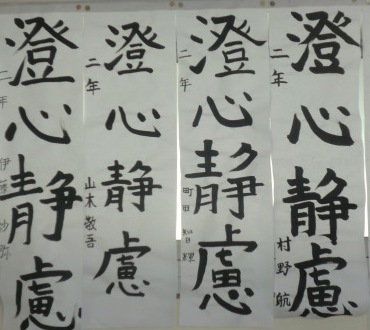 澄心静慮
二年 村野 航
澄心静慮
二年 町田
澄心静慮
二年 山木敬吾
澄心静慮
二年